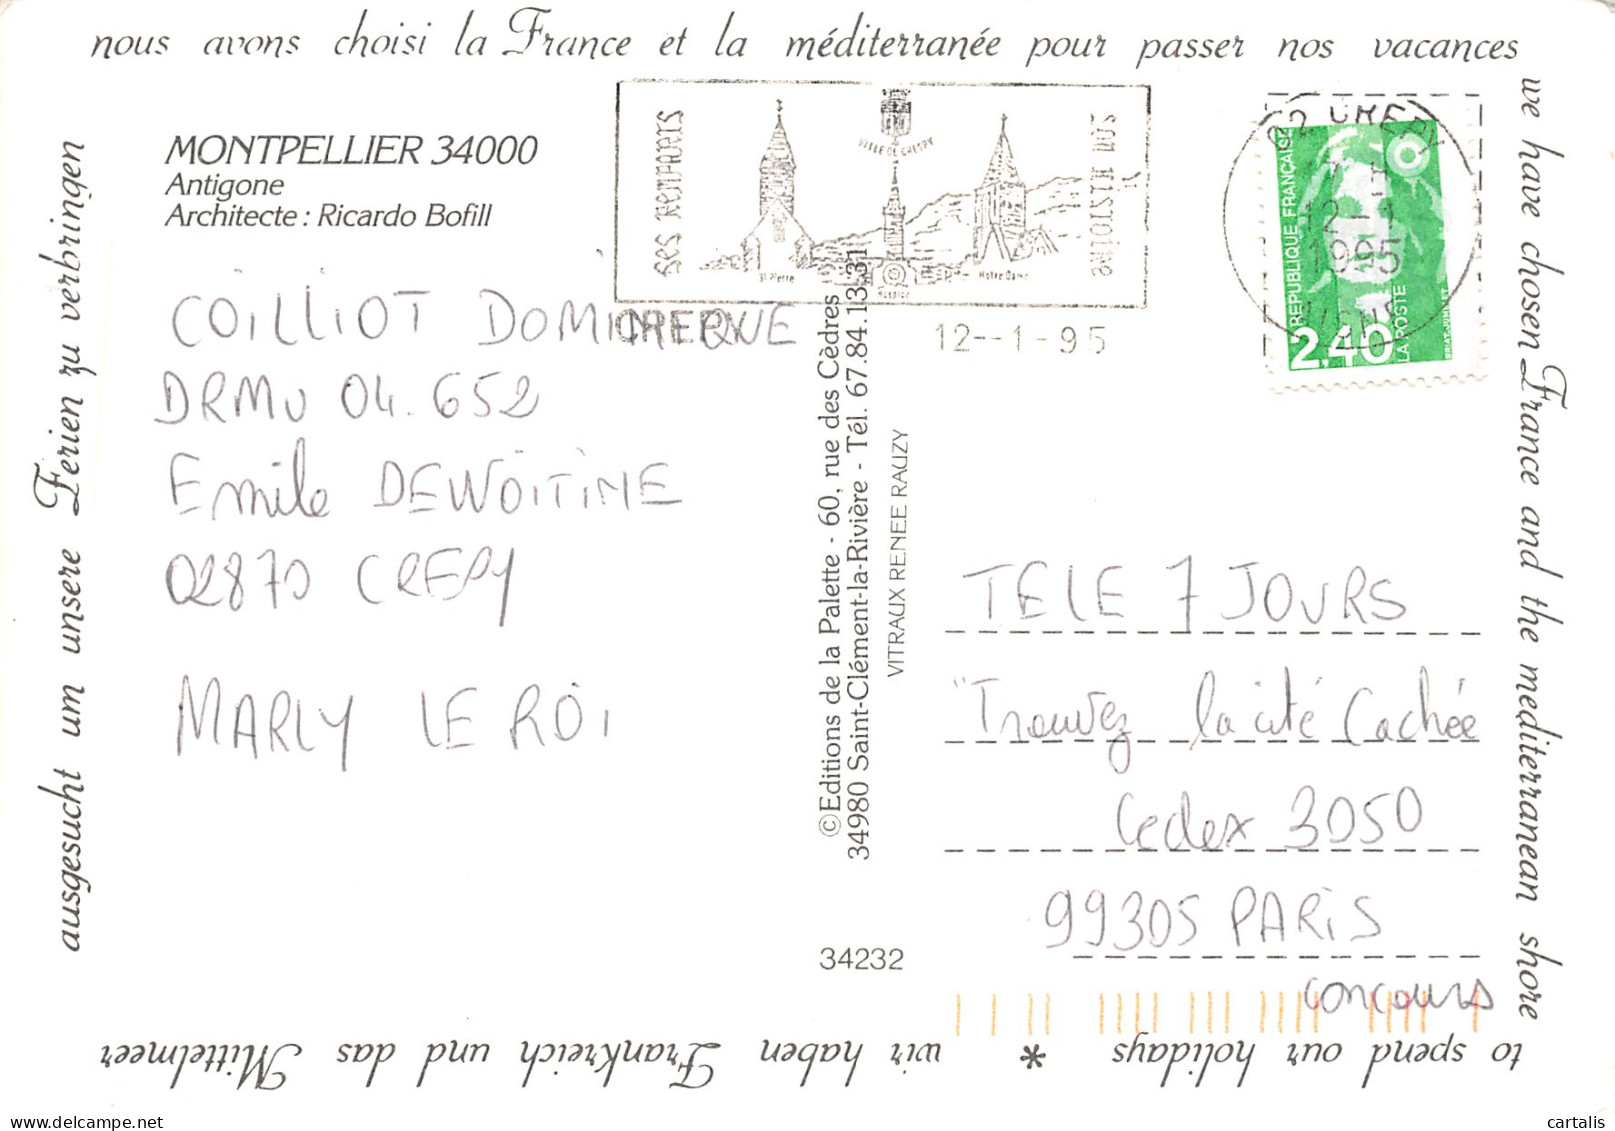 nous avons choisi la France et la méditerranée pour passer nos vacances
we have chosen France and the mediterranean shore
to spend our holidays * wir haben Frankreich und das Mittelmeer
ausgesucht um unsere Ferien zu verbringen
MONTPELLIER 34000
Antigone
Architecte : Ricardo Bofill
COILLIOT DOMINIQUE
DRMU 04.652
Emile DEWOITINE
02870 CREPY
MARLY LE ROI
ses remparts
VILLE DE CREPY
son histoire
St Pierre
Hospice
Notre Dame
CREPY
12--1-95
02 CREPY
12-1
1995
AISNE
REPUBLIQUE FRANÇAISE
2,40
LA POSTE
BRIAT-JUMELET
© Editions de la Palette - 60, rue des Cèdres
34980 Saint-Clément-la-Rivière - Tél. 67.84.13.31
VITRAUX RENEE RAUZY
34232
TELE 7 JOURS
"Trouvez la cité Cachée
Cedex 3050
99305 PARIS
concours
cartalis
www.delcampe.net